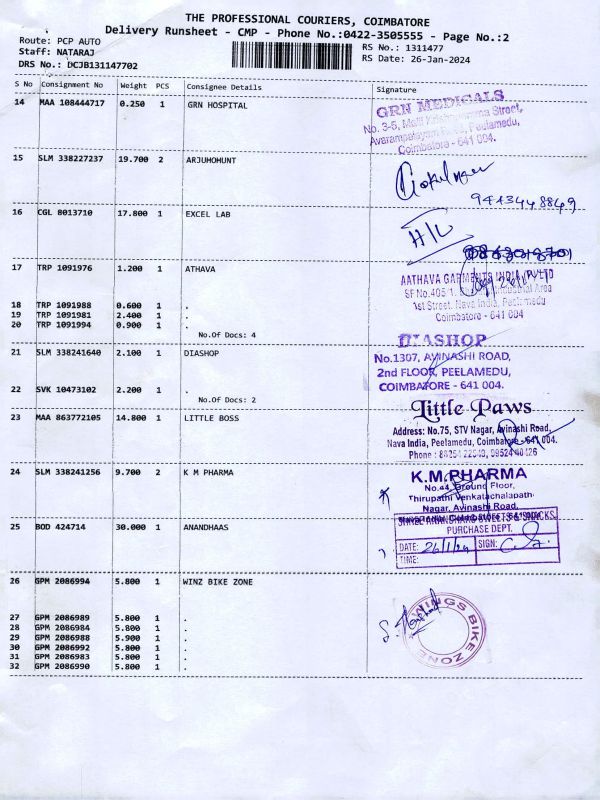 THE PROFESSIONAL COURIERS, COIMBATORE
Delivery Runsheet - CMP - Phone No.:0422-3505555 - Page No.:2
Route: PCP AUTO
Staff: NATARAJ
DRS No.: DCJB131147702
RS No.: 1311477
RS Date: 26-Jan-2024
S No Consignment No Weight PCS Consignee Details Signature
14 MAA 108444717 0.250 1 GRN HOSPITAL
GRN MEDICALS
No. 3-5, Street,
Avarampalayam Peelamedu,
Coimbatore - 641 004.
15 SLM 338227237 19.700 2 ARJUMOHUNT
9443448849
16 CGL 8013710 17.800 1 EXCEL LAB
H/L
17 TRP 1091976 1.200 1 ATHAVA
AATHAVA GARMENTS INDIA PVT LTD
SF No.405 Industrial Area
1st Street, Nava India, Peelamedu
Coimbatore - 641 004
18 TRP 1091988 0.600 1 .
19 TRP 1091981 2.400 1 .
20 TRP 1091994 0.900 1 .
No.Of Docs: 4
21 SLM 338241640 2.100 1 DIASHOP
DIASHOP
No.1307, AVINASHI ROAD,
2nd FLOOR, PEELAMEDU,
COIMBATORE - 641 004.
22 SVK 10473102 2.200 1 .
No.Of Docs: 2
23 MAA 863772105 14.800 1 LITTLE BOSS
Little Paws
Address: No.75, STV Nagar, Avinashi Road,
Nava India, Peelamedu, Coimbatore - 641 004.
Phone :
24 SLM 338241256 9.700 2 K M PHARMA
K.M.PHARMA
No.44, Ground Floor,
Thirupathi Venkatachalapathi
Nagar, Avinashi Road,
25 BOD 424714 30.000 1 ANANDHAAS
SHREE ANANDHAAS SWEETS & SNACKS
PURCHASE DEPT.
DATE: 26/1/24 SIGN:
TIME:
26 GPM 2086994 5.800 1 WINZ BIKE ZONE
WINGS BIKE ZONE
27 GPM 2086989 5.800 1 .
28 GPM 2086984 5.800 1 .
29 GPM 2086988 5.900 1 .
30 GPM 2086992 5.800 1 .
31 GPM 2086983 5.800 1 .
32 GPM 2086990 5.800 1 .